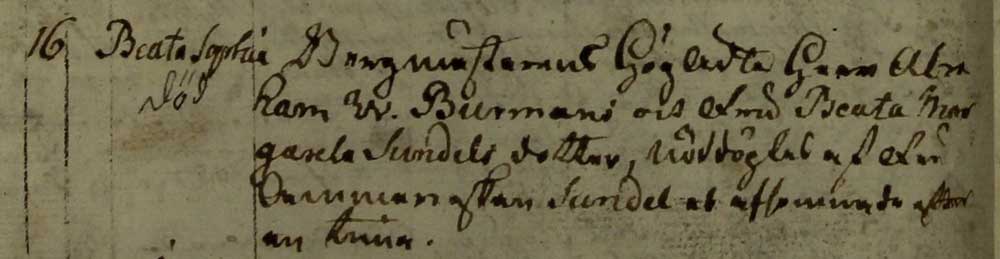 16 Beata Sophia Bergmästarens HögAdte Herr Abra
död ham W. Burmans och Fru Beata Mar
gareta Sundels dotter, nöddöptes af Fru
Sundel et afsomnade efter
en tima.